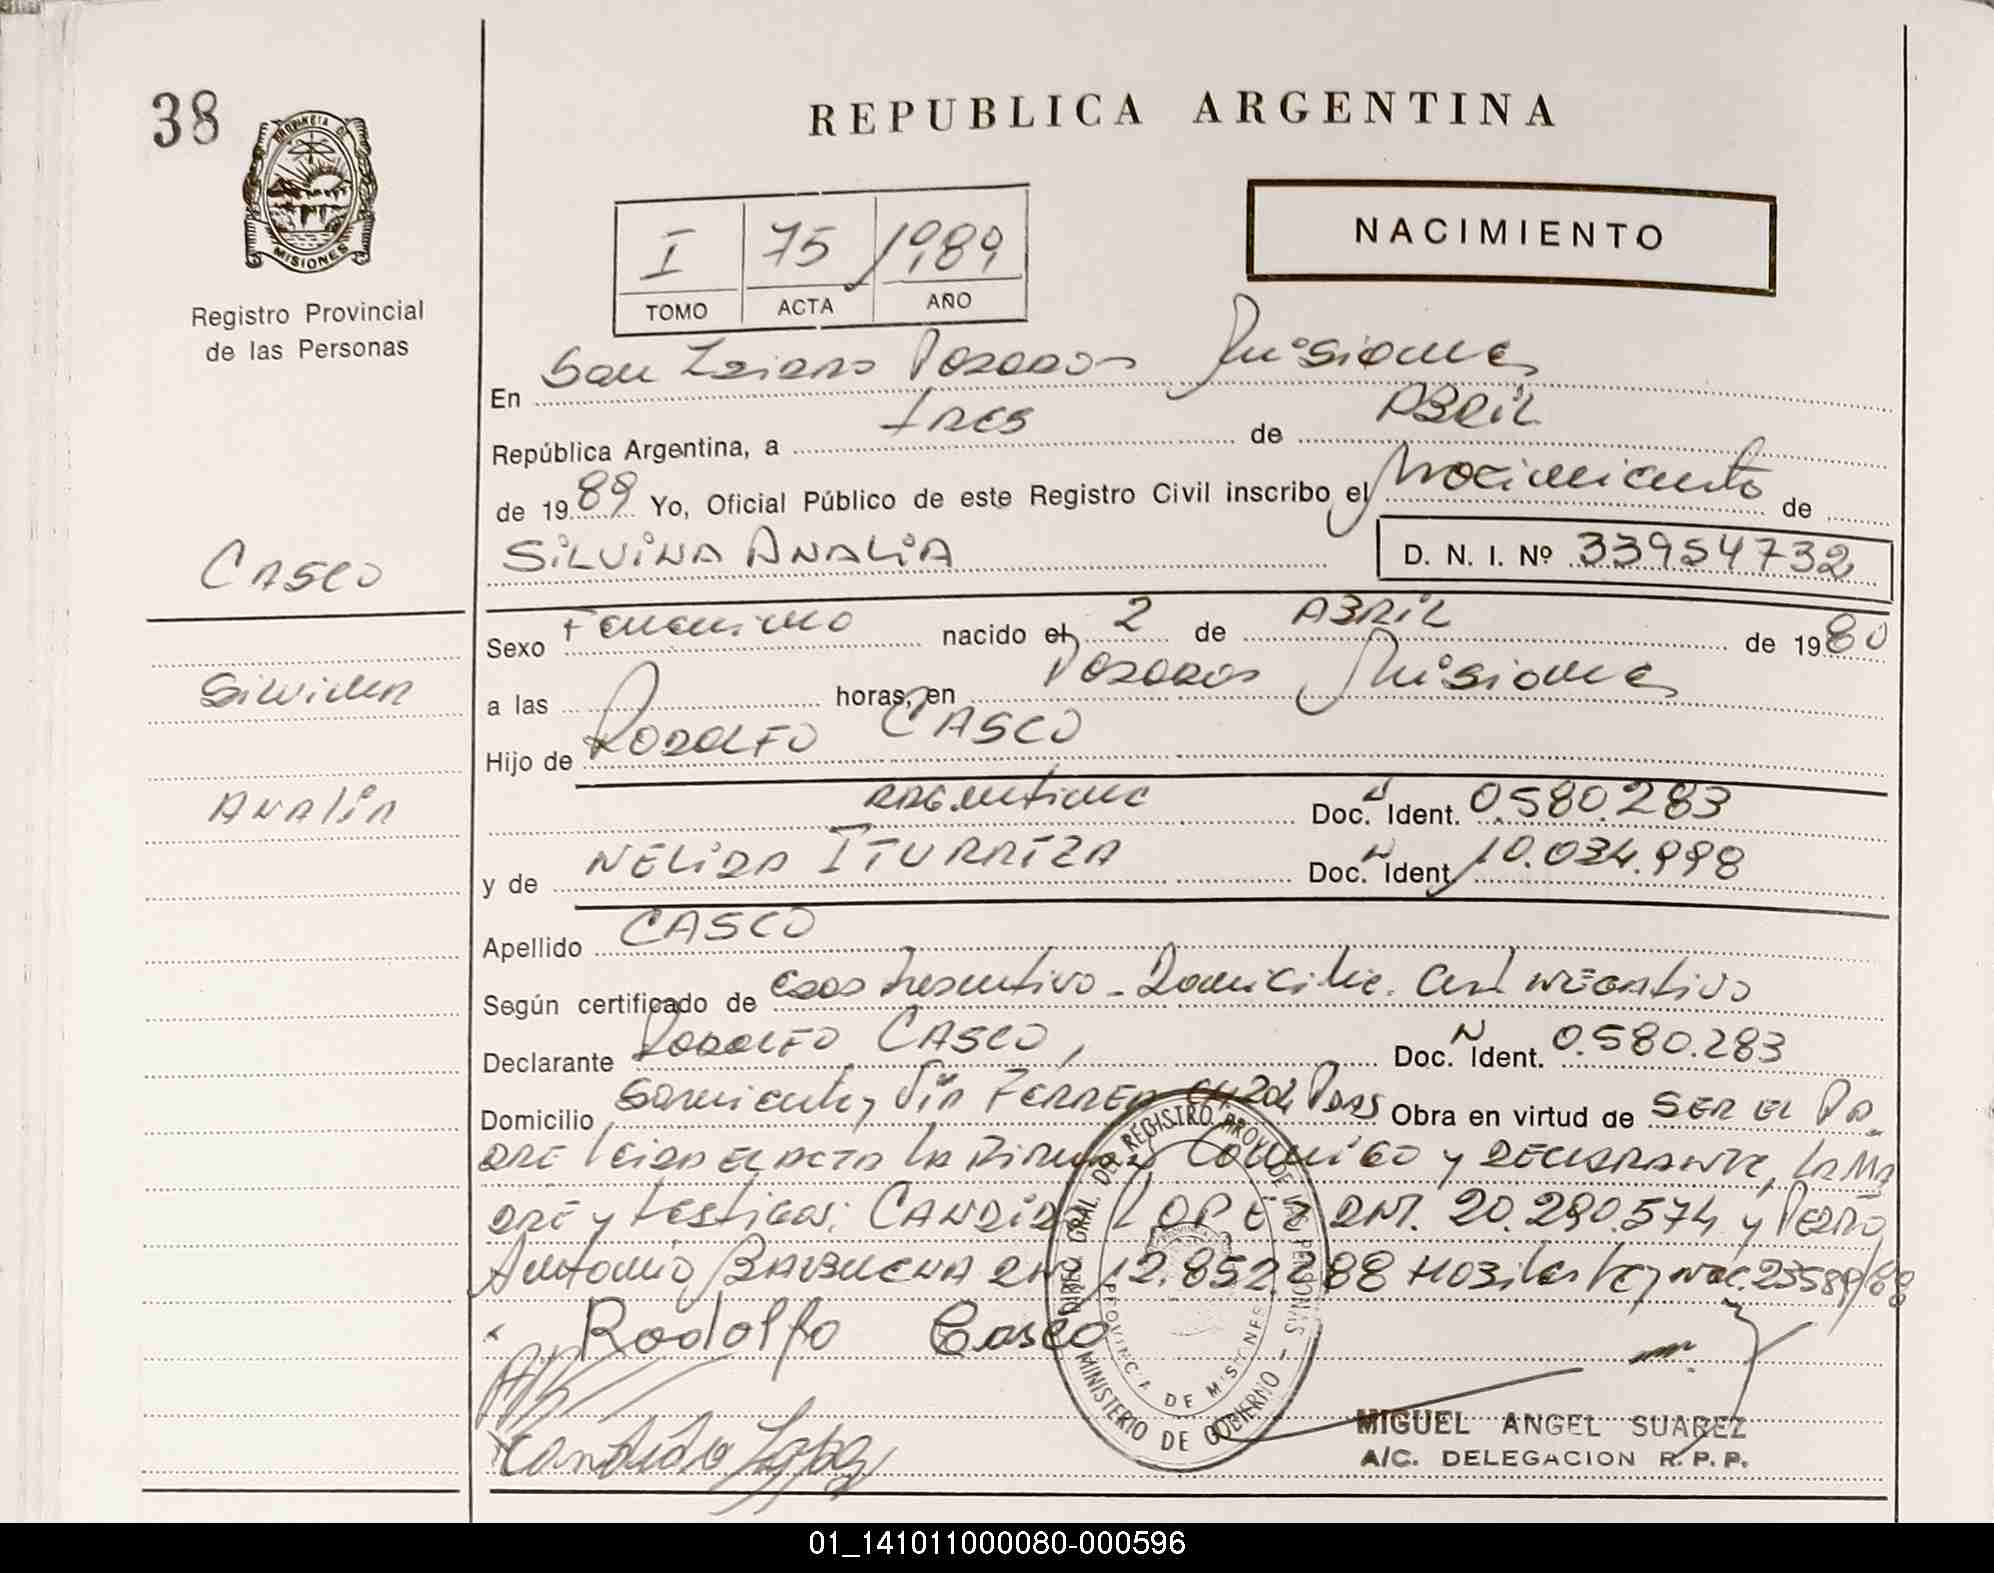 38
REPUBLICA ARGENTINA
PROVINCIA D
MISIONES
Registro Provincial
de las Personas
NACIMIENTO
I 75 1989
TOMO ACTA AÑO
En San Isidro Posadas Misiones
República Argentina, a Tres de ABRiL
de 1989 Yo, Oficial Público de este Registro Civil inscribo el Nacimiento de
CASCO
SiLViNA ANALiA D. N. I. Nº 33954732
Sexo Femenino nacido el 2 de ABRiL de 1980
Silvina
a las horas, en Posadas Misiones
Hijo de RODOLFO CASCO
Analia
Argentino Doc. Ident. 0.580.283
y de NELiDA ITURRIZA Doc. Ident. 10.034.998
Apellido CASCO
Según certificado de Domicilio. Negativo
Declarante RODOLFO CASCO, Doc. Ident. 0.580.283
Domicilio Sarmiento y Vía FERREA Obra en virtud de SER EL PA-
DRE Leida EL ACTA LA Firman Conmigo y DECLARANTE, LA MA
DRE y testigos: CANDIDO LOPEZ DNI. 20.290.574 y PEDRO
Antonio 12.852.288
Rodolfo Casco
Candido Lopez
DIREC. GRAL. DE REGISTRO PROV. DE LAS PERSONAS
PROVINCIA DE MISIONES
MINISTERIO DE GOBIERNO
MIGUEL ANGEL SUAREZ
A/C. DELEGACION R. P. P.
01_141011000080-000596